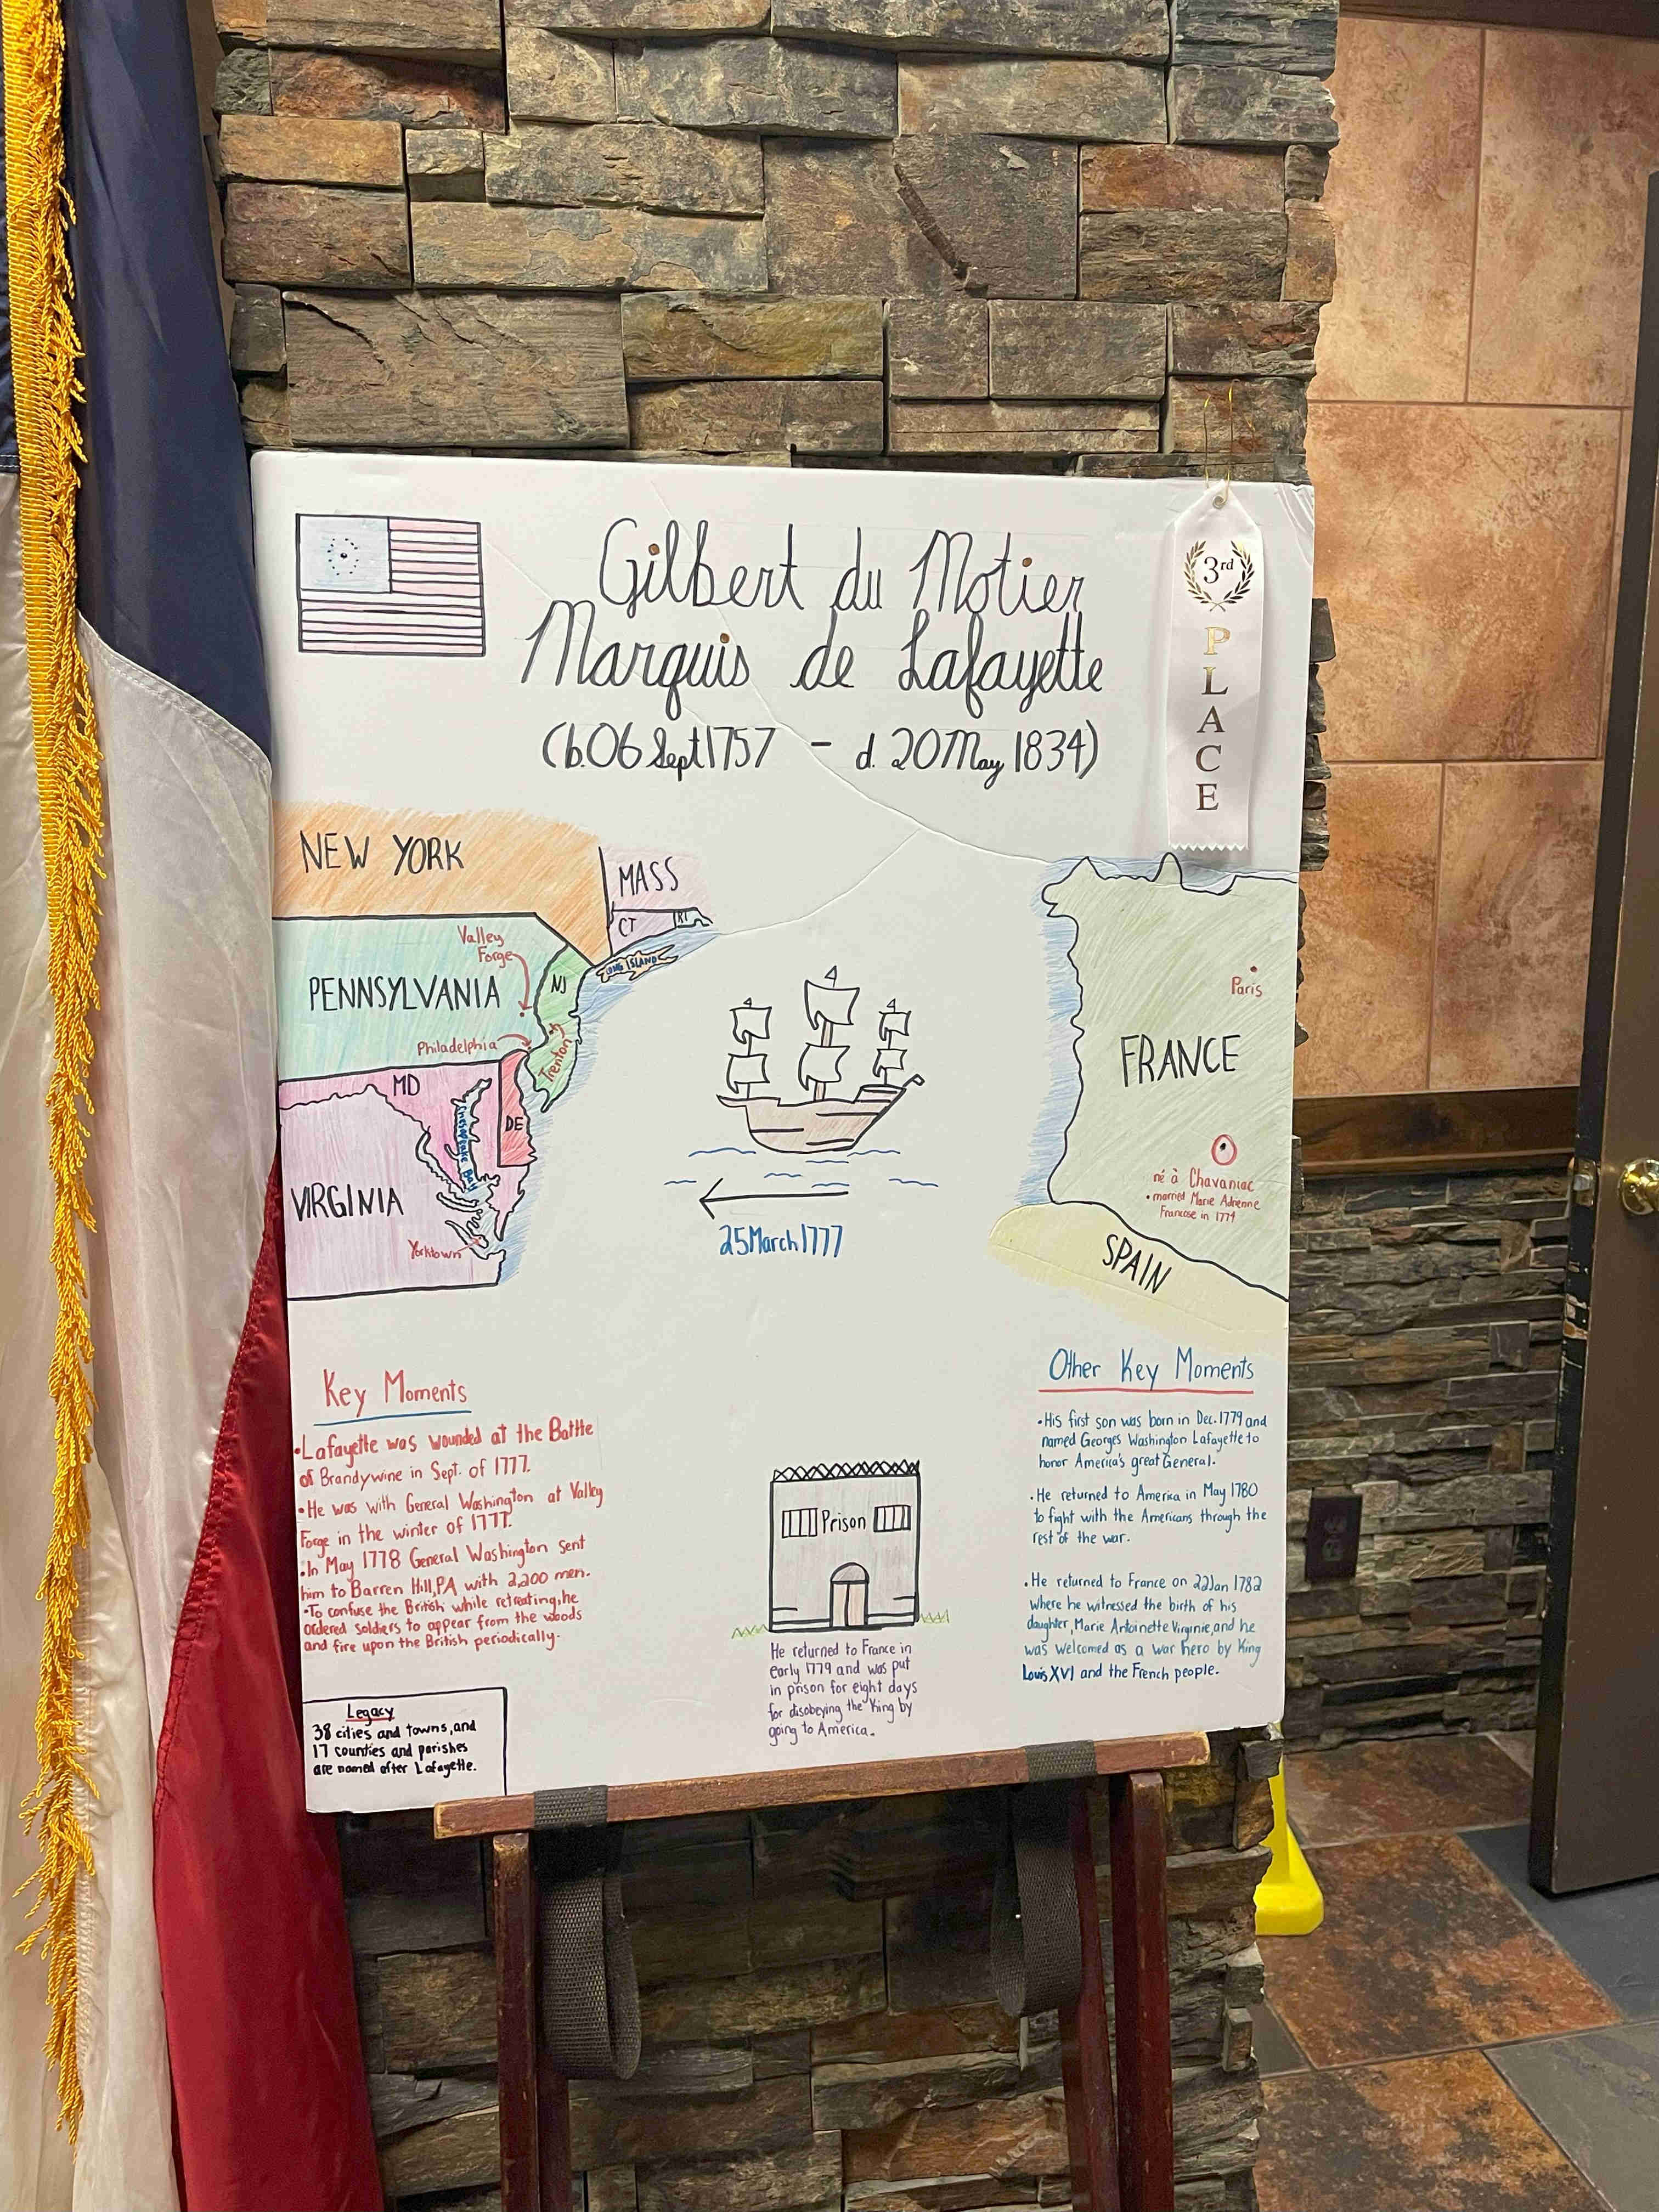 Gilbert du Motier
Marquis de Lafayette
(b.06 Sept 1757 - d. 20 May 1834)
3rd
PLACE
NEW YORK
MASS
CT
RI
LONG ISLAND
Valley
Forge
PENNSYLVANIA
NJ
Philadelphia
Trenton
MD
DE
Chesapeake Bay
VIRGINIA
Yorktown
25 March 1777
Paris
FRANCE
né à Chavaniac
• married Marie Adrienne
Francoise in 1774
SPAIN
Key Moments
• Lafayette was wounded at the Battle
of Brandywine in Sept. of 1777.
• He was with General Washington at Valley
Forge in the winter of 1777.
• In May 1778 General Washington sent
him to Barren Hill, PA with 2,200 men.
• To confuse the British while retreating, he
ordered soldiers to appear from the woods
and fire upon the British periodically.
Legacy
38 cities and towns, and
17 counties and parishes
are named after Lafayette.
Prison
He returned to France in
early 1779 and was put
in prison for eight days
for disobeying the King by
going to America.
Other Key Moments
• His first son was born in Dec. 1779 and
named Georges Washington Lafayette to
honor America's great General.
• He returned to America in May 1780
to fight with the Americans through the
rest of the war.
• He returned to France on 22 Jan 1782
where he witnessed the birth of his
daughter, Marie Antoinette Virginie, and he
was welcomed as a war hero by King
Louis XVI and the French people.